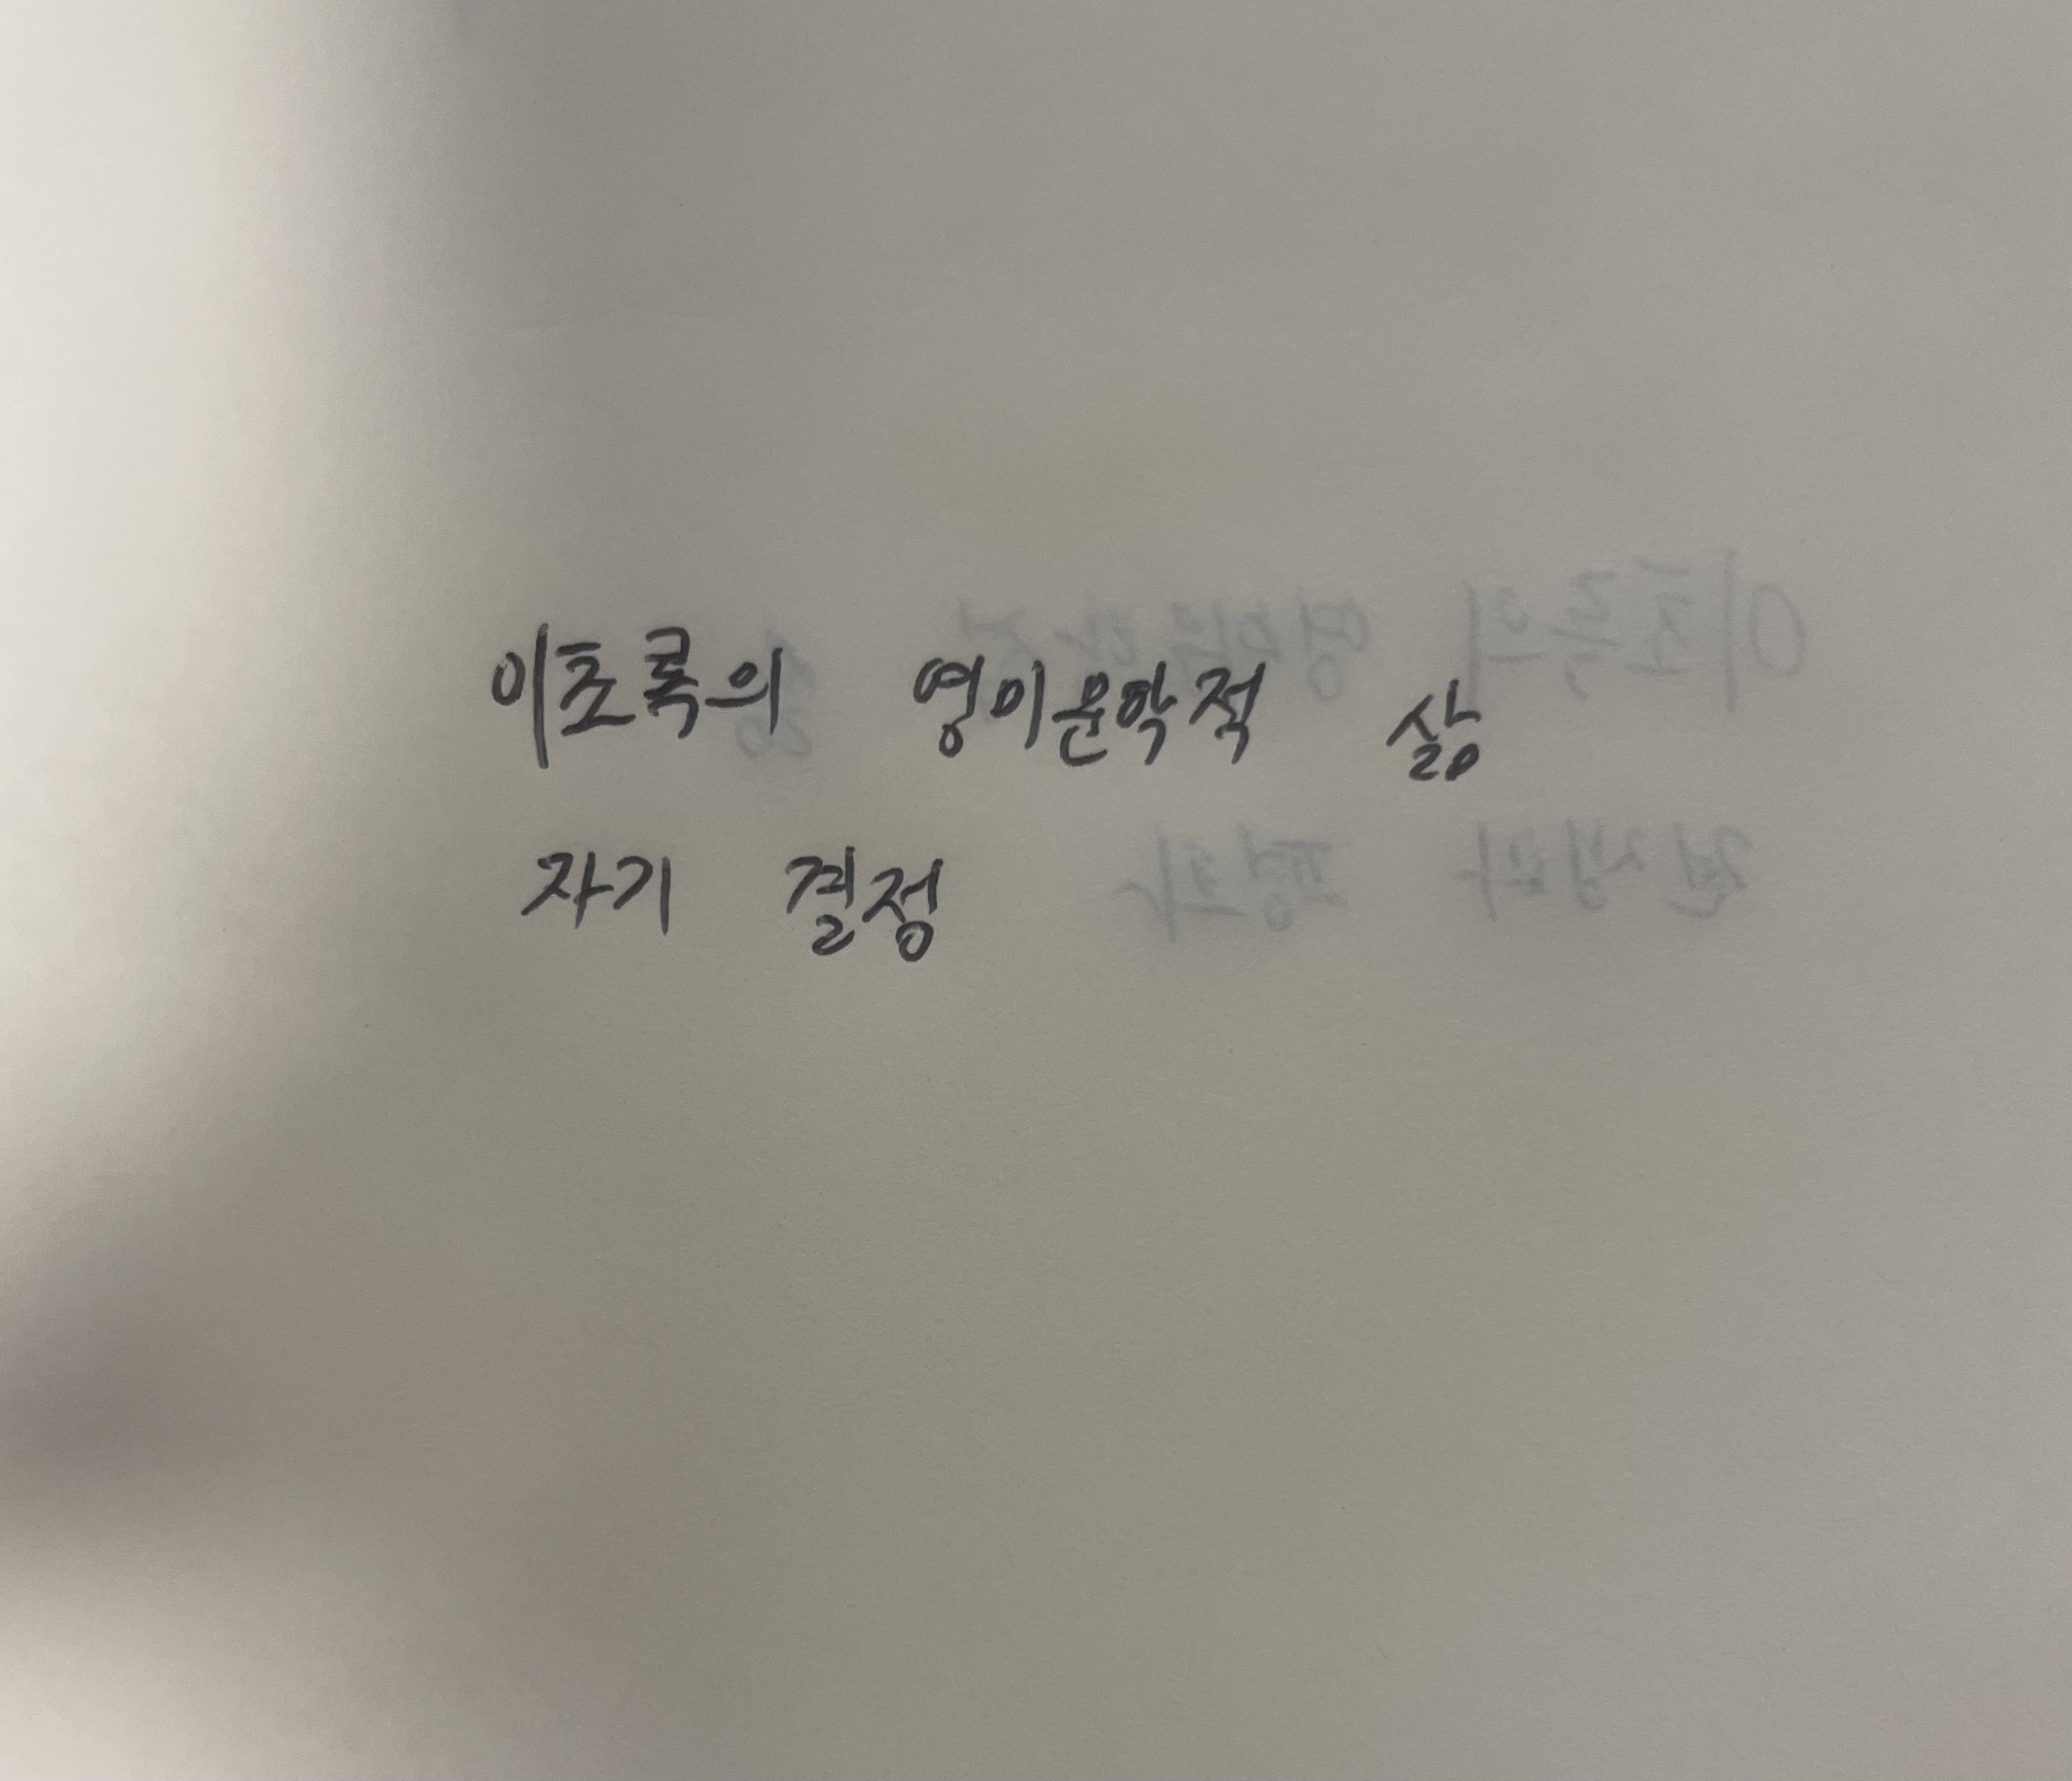 이초록의 영미문학적 삶
자기 결정